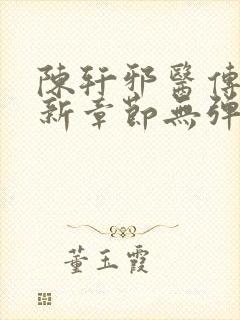 陳軒邪醫傳
新章節無彈
董玉霞